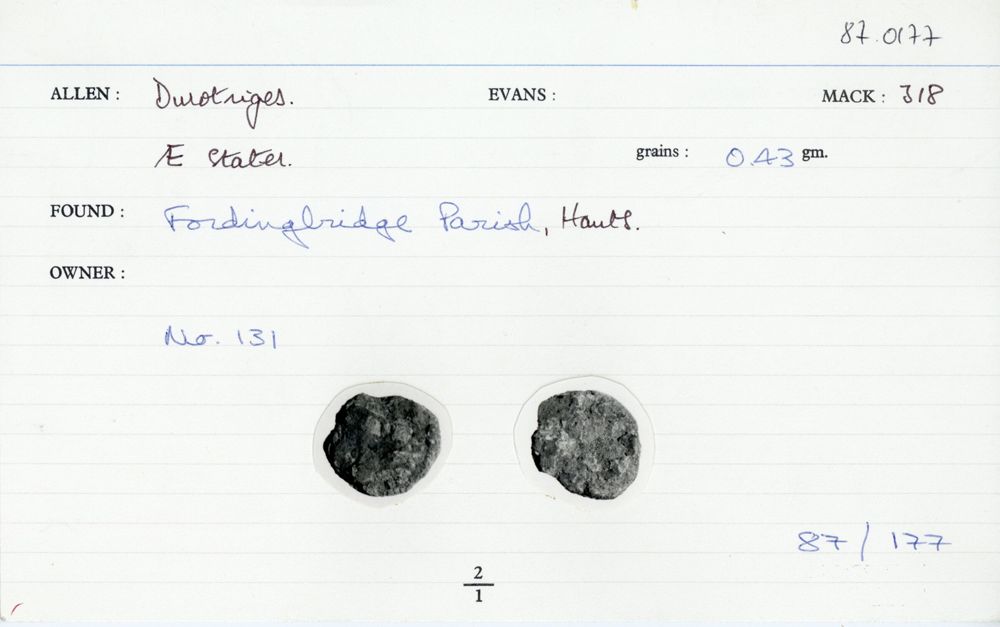 87.0177
ALLEN : Durotriges. EVANS : MACK : 318
Æ Stater. grains : 0.43 gm.
FOUND : Fordingbridge Parish, Hants.
OWNER :
No. 131
87 / 177
2
1